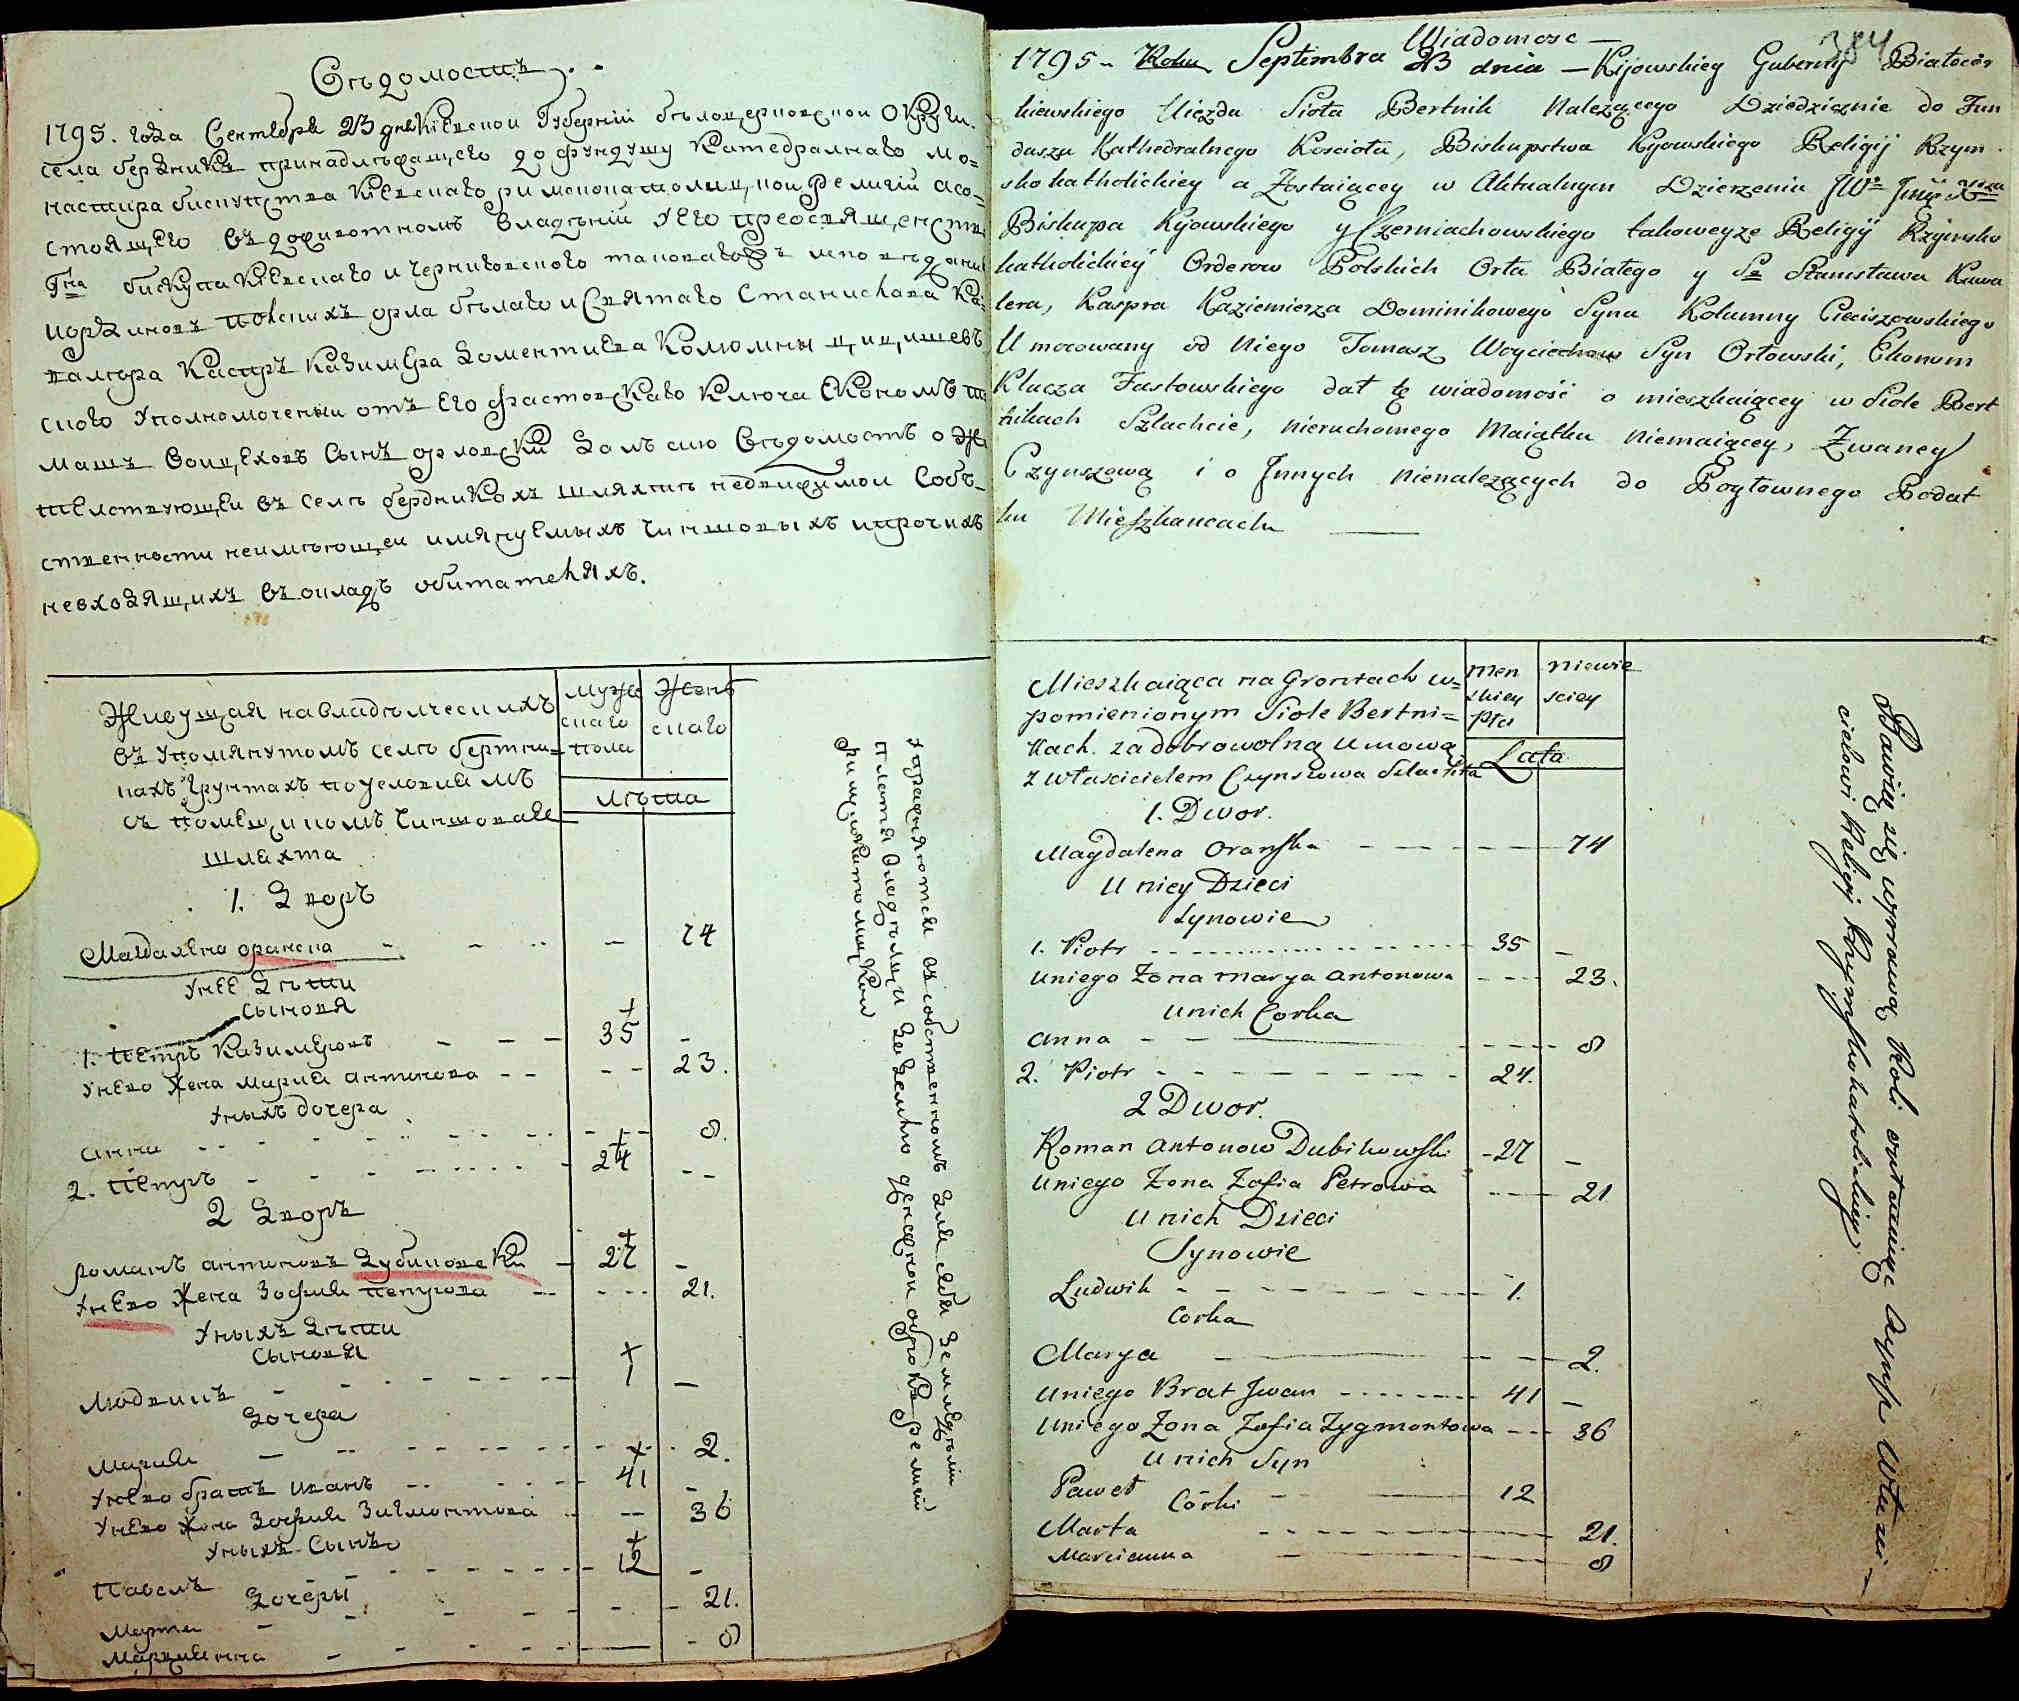 Вѣдомость
1795. года Сентебра 23 дня Кіевской Губерніи бѣлоцерковской Округи.
села бертника принадлѣжащего до фундушу Катедралнаго Мо=
настира бискупства Кіевскаго римскокатолицкой Религіи асо=
стоящего въ доживотномъ владѣніи Его преосвященства
Гна бискупа Кіевскаго и черниговского таковагожъ исповѣдания
иорденовъ полскихъ орла бѣлаго и Святаго Станислава Ка=
валера Каспра Казимера Доментиева Колюмны цицишевъ
ского Уполномоченый отъ Его фастовскаго Ключа Економъ то
машъ войцеховъ Сынъ орловскій далъ сию вѣдомость о жи
телствующей въ селѣ бердникахъ шляхти недвижимой Соб=
ственности неимѣющей имянуемыхъ чиншовыхъ ипрочихъ
невходящихъ въ окладъ обитателяхъ.
Живущая навладѣлческихъ
въ Упомянутомъ селѣ бертни=
кахъ грунтахъ поусловиямъ
съ помещикомъ чиншовая
шляхта
муже
скаго
пола
Женъ
скаго
лѣта
1. Дворъ
Магдалена оранска - - - - 74
Унее Дѣти
Сыновя
1. Петръ Казимеровъ - - - 35 -
Унего Жена мария антонова - - - - 23.
Унихъ дочера
анна - - - - 8.
2. Петръ - - - - 24 -
2 Дворъ
романъ антоновъ Дубиковскій - 27 -
Унего Жена Зофия петрова - - - 21.
Унихъ Дѣти
Сыновя
Людвикъ - - - 1 -
Дочера
Мария - - - 2.
Унего братъ иванъ - - - 41 -
Унего Жена Зофия Зигмонтова - - 36
Унихъ Сынъ
Павелъ - - - 12 -
Дочери
Марта - - - 21.
Марцианна - - - 8
Упражняются въ собственномъ для себя земледѣлии
платя владѣлцу за землю денежной оброкъ Религіи
Римскокатолицкой
384
Wiadomosc —
1795 - Roku Septembra 23 dnia — Kijowskiey Guberny Białocer
kiewskiego Uiezdu Sioła Bertnik Należącego Dziedzicznie do Fun
duszu Kathedralnego Kościoła, Biskupstwa Kijowskiego Religij Rzym
sko katholickiey a Zostaiącey w Aktualnym Dzierzeniu JWo Jmć Xdza
Biskupa Kijowskiego y Czerniachowskiego takoweyze Religij Rzymsko
katholickiey Orderow Polskich Orła Białego y So Stanisława Kawa
lera, Kaspra Kaziemierza Dominikowego Syna Kolumny Cieciszowskiego
Umocowany od Niego Tomasz Woyciechow Syn Orłowski, Ekonom
Klucza Fastowskiego dał tę wiadomość o mieszkaiącey w Siole Bert
nikach Szlachcie, nieruchomego Maiątku niemaiącey, Zwaney
Czynszową i o Jnnych nienalezących do Pogłownego Podat
ku Mieszkancach
Mieszkaiąca na Grontach w=
pomienionym Siole Bertni=
kach. za dobrowolną umową
z właścicielem Czynszowa Szlachta
Men
skiey
Płci
Niewie
sciey
Lata
1. Dwor.
Magdalena Oranska - - - - 74
U niey Dzieci
Synowie
1. Piotr - - - - 35 -
Uniego Zona Marya Antonowa - - - 23.
Unich Corka
Anna - - - - 8
2. Piotr - - - - 24.
2 Dwor.
Roman Antonow Dubikowski - 27 -
Uniego Zona Zofia Petrowa - - - 21
Unich Dzieci
Synowie
Ludwik - - - - 1.
Corka
Marya - - - 2.
Uniego Brat Jwan - - - 41 -
Uniego Zona Zofia Zygmontowa - - - 36
Unich Syn
Paweł - - - 12
Córki
Marta - - - 21.
Marcianna - - - 8
Bawią się uprawą Roli opłaiaiąc Czynsz Włazi-
cielowi Religij Rzymskokatholickiey